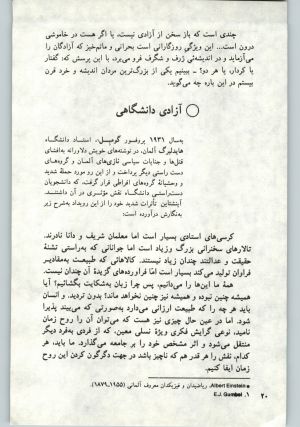 چندی است که باز سخن از آزادی نیست، یا اگر هست در خاموشی
درون است... این ویژگی روزگارانی است بحرانی و ماتم‌خیز که آزادگان را
می‌آزماید و در اندیشه‌ئی ژرف و شگرف فرو می‌برد، با این پرسش که: گفتار
یا کردار، یا هر دو؟ ـ ببینیم یکی از بزرگ‌ترین مردان اندیشه و خرد قرن
بیستم در این باره چه می‌گوید.
آزادی دانشگاهی
به‌سال ۱۹۳۱ پروفسور گومبل، استاد دانشگاه
هایدلبرگ آلمان، در نوشته‌های خویش دلاورانه به‌افشای
قتل‌ها و جنایات سیاسی نازی‌های آلمان و گروه‌های
دست راستی دیگر پرداخت و از این رو مورد حملهٔ شدید
و وحشیانهٔ گروه‌های افراطی قرار گرفت، که دانشجویان
دست‌راستی دانشگاه نقش مؤثری در آن داشتند.
آینشتاین تأثرات شدید خود را از این رویداد به‌شرح زیر
به‌نگارش درآورده است:
کرسی‌های استادی بسیار است اما معلمان شریف و دانا نادرند.
تالارهای سخنرانی بزرگ وزیاد است اما جوانانی که به‌راستی تشنهٔ
حقیقت و عدالتند چندان زیاد نیستند. کالاهائی که طبیعت به‌مقادیر
فراوان تولید می‌کند بسیار است اما فراورده‌های گزیدهٔ آن چندان نیست.
همهٔ ما این‌ها را می‌دانیم، پس چرا زبان به‌شکایت بگشائیم؟ آیا
همیشه چنین نبوده و همیشه نیز چنین نخواهد ماند؟ بدون تردید. و انسان
باید هر چه را که طبیعت ارزانی می‌دارد به‌صورتی که می‌بیند پذیرا
شود. اما در عین حال چیزی نیز هست که می‌توان آن را روح زمان
نامید، نوعی گرایش فکری ویژهٔ نسلی معین، که از فردی به‌فرد دیگر
منتقل می‌شود و اثر مشخص خود را بر جامعه می‌گذارد. ما باید، هر
کدام، نقش را هر قدر هم که ناچیز باشد در جهت دگرگون کردن این روح
زمان ایفا کنیم.
Albert Einstein. ریاضیدان و فیزیکدان معروف آلمانی (۱۹۵۵ـ۱۸۷۹).
۱. E.J. Gumbel
۲۰